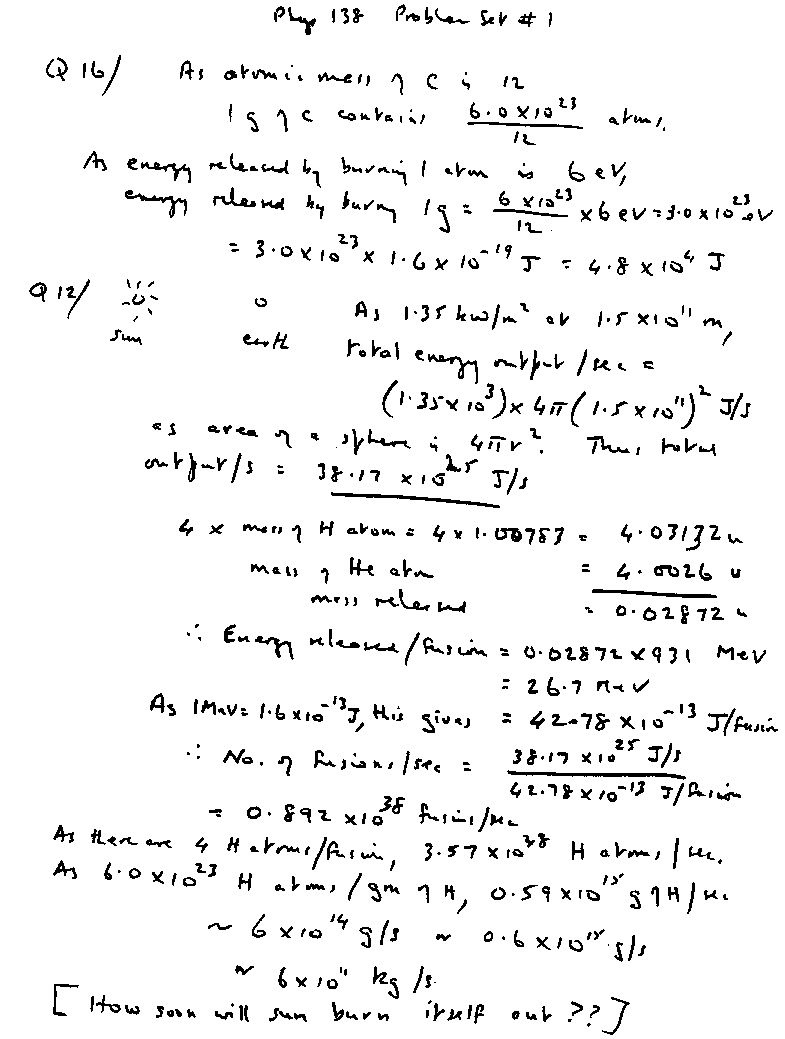 Phys 138 Problem Set # 1
Q 16/ As atomic mass of C is 12
1 g of C contains 6.0 x 10^23 / 12 atoms.
As energy released by burning 1 atom is 6 eV,
energy released by burning 1g = 6 x 10^23 / 12 x 6 eV = 3.0 x 10^23 eV
= 3.0 x 10^23 x 1.6 x 10^-19 J = 4.8 x 10^4 J
Q 12/ As 1.35 kw/m^2 at 1.5 x 10^11 m,
sun earth total energy output / sec =
(1.35 x 10^3) x 4π (1.5 x 10^11)^2 J/s
as area of a sphere is 4πr^2. Thus total
output/s = 38.17 x 10^25 J/s
4 x mass of H atom = 4 x 1.00783 = 4.03132 u
mass of He atom = 4.0026 u
mass released = 0.02872 u
∴ Energy released / fusion = 0.02872 x 931 MeV
= 26.7 MeV
As 1 MeV = 1.6 x 10^-13 J, this gives = 42.78 x 10^-13 J/fusion
∴ No. of fusions / sec = 38.17 x 10^25 J/s / 42.78 x 10^-13 J/fusion
= 0.892 x 10^38 fusions/sec
As there are 4 H atoms/fusion, 3.57 x 10^38 H atoms / sec.
As 6.0 x 10^23 H atoms / gm of H, 0.59 x 10^15 g of H / sec
~ 6 x 10^14 g/s ~ 0.6 x 10^15 g/s
~ 6 x 10^11 kg /s.
[ How soon will sun burn itself out ?? ]